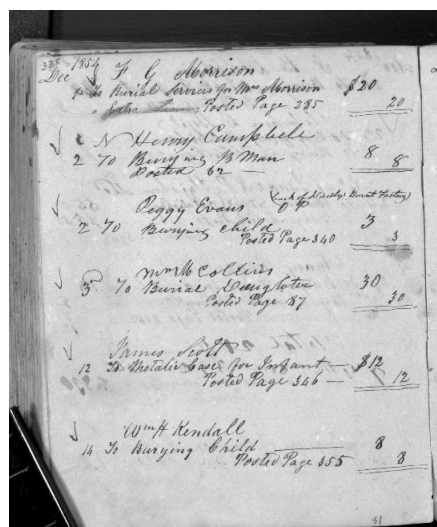 1854 F G Morrison
Dec
1 To Burial Services for Mrs Morrison $20
" Extra Posted Page 285 20
N Henry Campbele
2 To Burying B Man 8
Posted 62 — 8
Peggy Evans (back of Burnt Factory)
2 To Burying Child 3
Posted Page 340 3
Mrs M Collins
3 To Burial Daughter 30
Posted Page 87 30
James Scott
12 To Metalic Case for Infant — $12
Posted Page 346 — 12
Wm H Kendall
14 To Burying Child 8
Posted Page 355 8